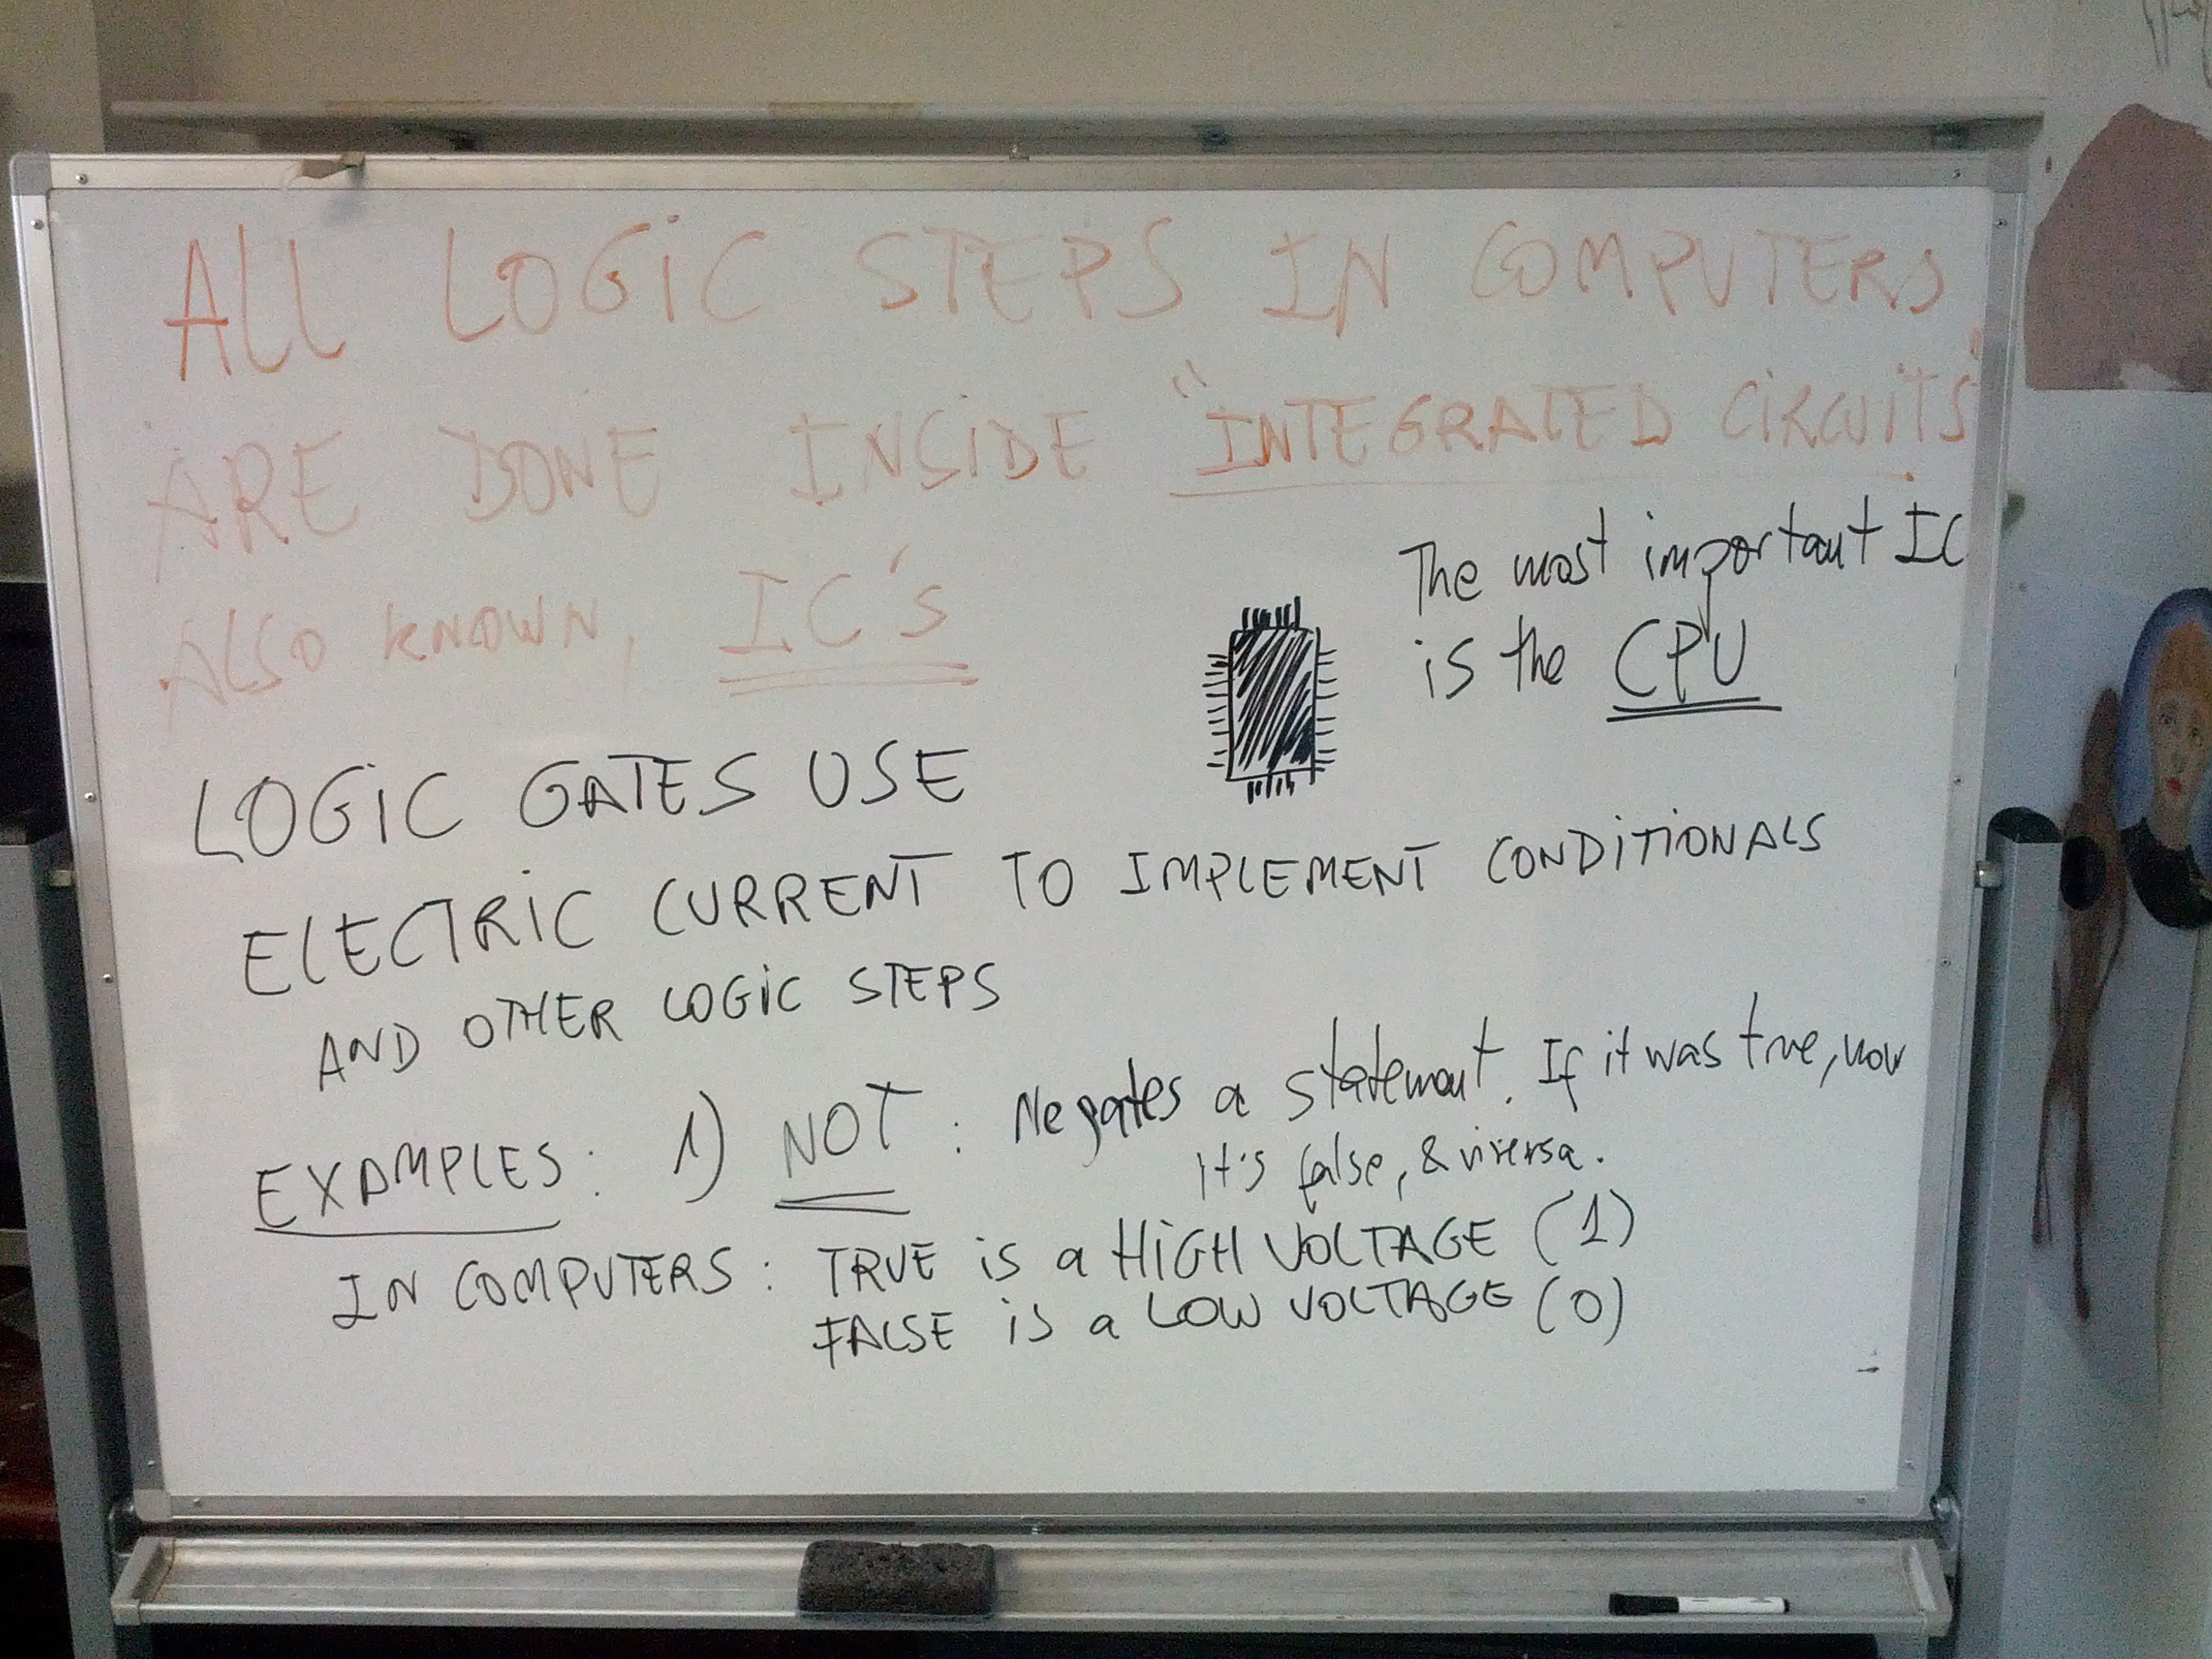 ALL LOGiC STEPS IN COMPUTERS,
ARE DONE INSiDE "INTEGRATED CiRCUiTS"
ALSO KNOWN, IC's
The most important IC
is the CPU
LOGiC GATES USE
ELECTRiC CURRENT TO IMPLEMENT CONDiTiONALS
AND OTHER LOGiC STEPS
EXAMPLES: 1) NOT: Negates a statement. If it was true, now
it's false, & viversa.
IN COMPUTERS: TRUE is a HiGH VOLTAGE (1)
FALSE is a LOW VOLTAGE (0)